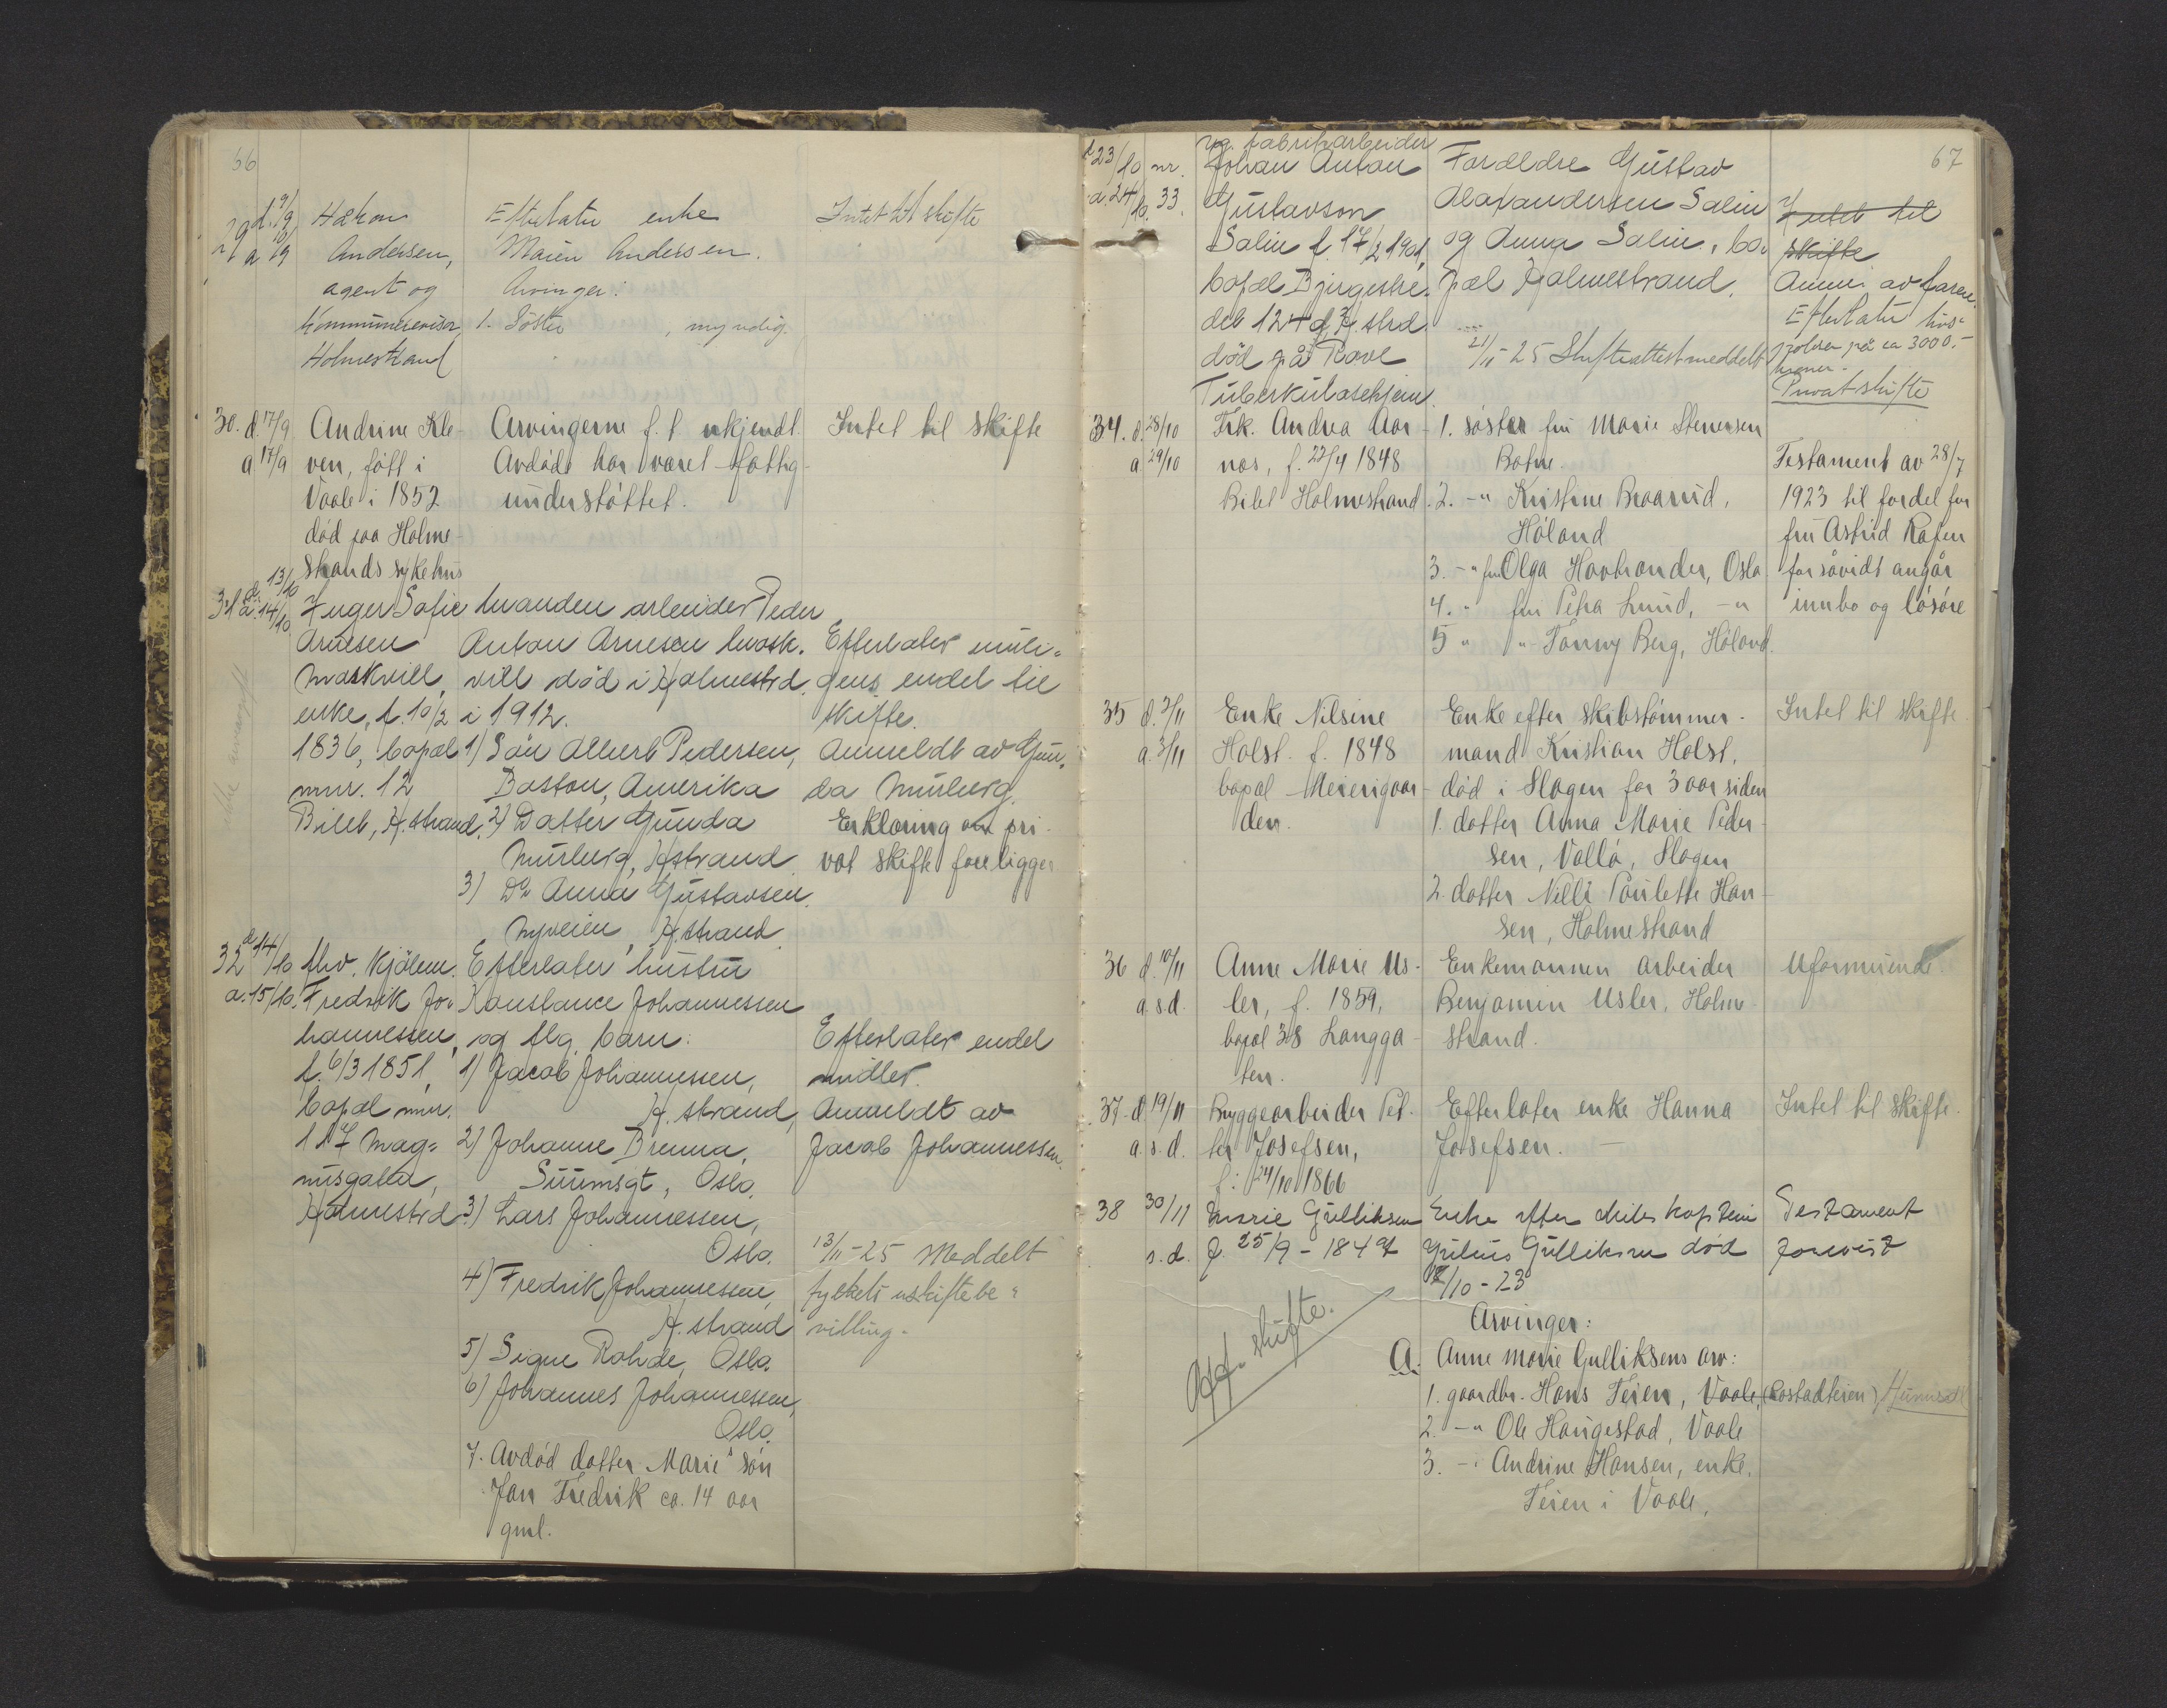 66
29 d. 9/9 Håkon
a 10/9 Andersen,
agent og
kommunerevisor,
Holmestrand
Efterlater enke
Maren Andersen.
Arvinger:
1. Søster , myndig.
Intet til skifte
30. d. 17/9 Andrine Kle-
a 17/9 ven, født i
Vaale i 1852
død paa Holme-
strands sykehus
Arvingerne f. t. ukjendt.
Avdøde har været fattig-
understøttet.
Intet til skifte
31 d. 13/10
a. 14/10 Inger Sofie
Arnesen
enke, f. 10/2
1836, bopæl
mnr. 12
Bilet, H.strand.
Manden arbeider Peder
Anton Arnesen
død i Holmestrd.
i 1912.
1) Søn Albert Pedersen,
Boston, Amerika
2) Datter Gunda
Murberg, H.strand
3) Do Anna Gustavsen,
Nyveien, H.strand
Efterlater muli-
gens endel til
skifte.
Anmeldt av Gun-
da Murberg.
Erklæring om pri-
vat skifte foreligger
32 d 14/10 fhv. kjøbm.
a. 15/10. Fredrik Jo-
hannessen,
f. 6/3 1851,
bopæl mnr.
117 Mag-
nusgata,
Holmestrd.
Efterlater hustru
Konstance Johannessen
og flg. barn:
1) Jacob Johannessen,
H.strand,
2) Johanne Brenna,
Suumsgt, Oslo.
3) Lars Johannessen,
Oslo.
4) Fredrik Johannessen,
H.strand
5) Signe Rohde, Oslo.
6) Johannes Johannessen,
Oslo.
7. Avdød datter Marie's søn
Jan Fredrik ca. 14 aar
gml.
Efterlater endel
midler.
Anmeldt av
Jacob Johannessen.
13/11-25 Meddelt
fylkets uskiftebe-
villing.
67
d 23/10 nr.
a. 24/10. 33.
ug. fabrikarbeider
Johan Anton
Gustavson
Salin f. 17/2 1901,
bopæl Bjergestre-
det 124 d, H.strd.
død på Rove
Tuberkulosehjem.
Forældre Gustav
Alaxandersen Salin
og Anna Salin, bo-
pæl Holmestrand.
21/11-25 Skifteattest meddelt
Intet til
skifte
Anm. av faren.
Efterlater hus-
polise på ca 3000.-
kroner.
Privat skifte
34. d. 28/10 Frk. Andrea Aar-
a 29/10 nos, f. 22/4 1848
Bilet Holmestrand.
1. søster fru Marie Stenersen
Botne.
2. -"- Kristine Braarud,
Høland
3. -"- fru Olga Havtrander, Oslo
4. " fru Petra Lund, -"-
5 " " Fanny Berg, Høland.
Testament av 28/7
1923 til fordel for
fru Astrid Rafen
forsåvidt angår
innbo og løsøre
35 d. 2/11 Enke Nilsine
a. 3/11 Holst. f. 1848
bopæl Meierigaar-
den.
Enke efter skibstømmer-
mand Kristian Holst,
død i Slagen for 3 aar siden
1. datter Anna Marie Peder-
sen, Vallø, Slagen
2. datter Nelli Paulette Han-
sen, Holmestrand
Intet til skifte.
36 d. 10/11 Anne Marie Us-
a. s.d. ler, f. 1859,
bopæl 38 Langga-
ten.
Enkemannen arbeider
Benjamin Usler, Holme-
strand.
Uformuende.
37. d. 19/11 Bryggearbeider Pet-
a. s. d. ter Josefsen,
f: 24/10 1866
Efterlater enke Hanna
Josefsen. -
Intet til skifte.
38 30/11 Marie Gulliksen
s. d. f. 25/9 - 1849
Off. skifte.
Enke efter skibskaptein
Julius Gulliksen død
12/10 - 23
Arvinger:
A. Anne Marie Gulliksens arv:
1. gaardbr. Hans Teien, Vaale,
2. -"- Ole Haugestad, Vaale
3. -"- Andrine Hansen, enke,
Teien i Vaale,
Testament
forevist